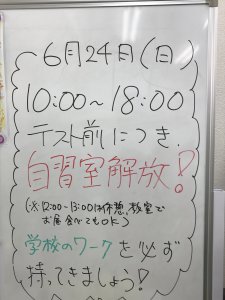 6月24日(日)
10:00~18:00
テスト前につき.
自習室解放!
(※12:00~13:00は休憩。教室で
お昼食べてもOK)
学校のワークを必ず
持ってきましょう!